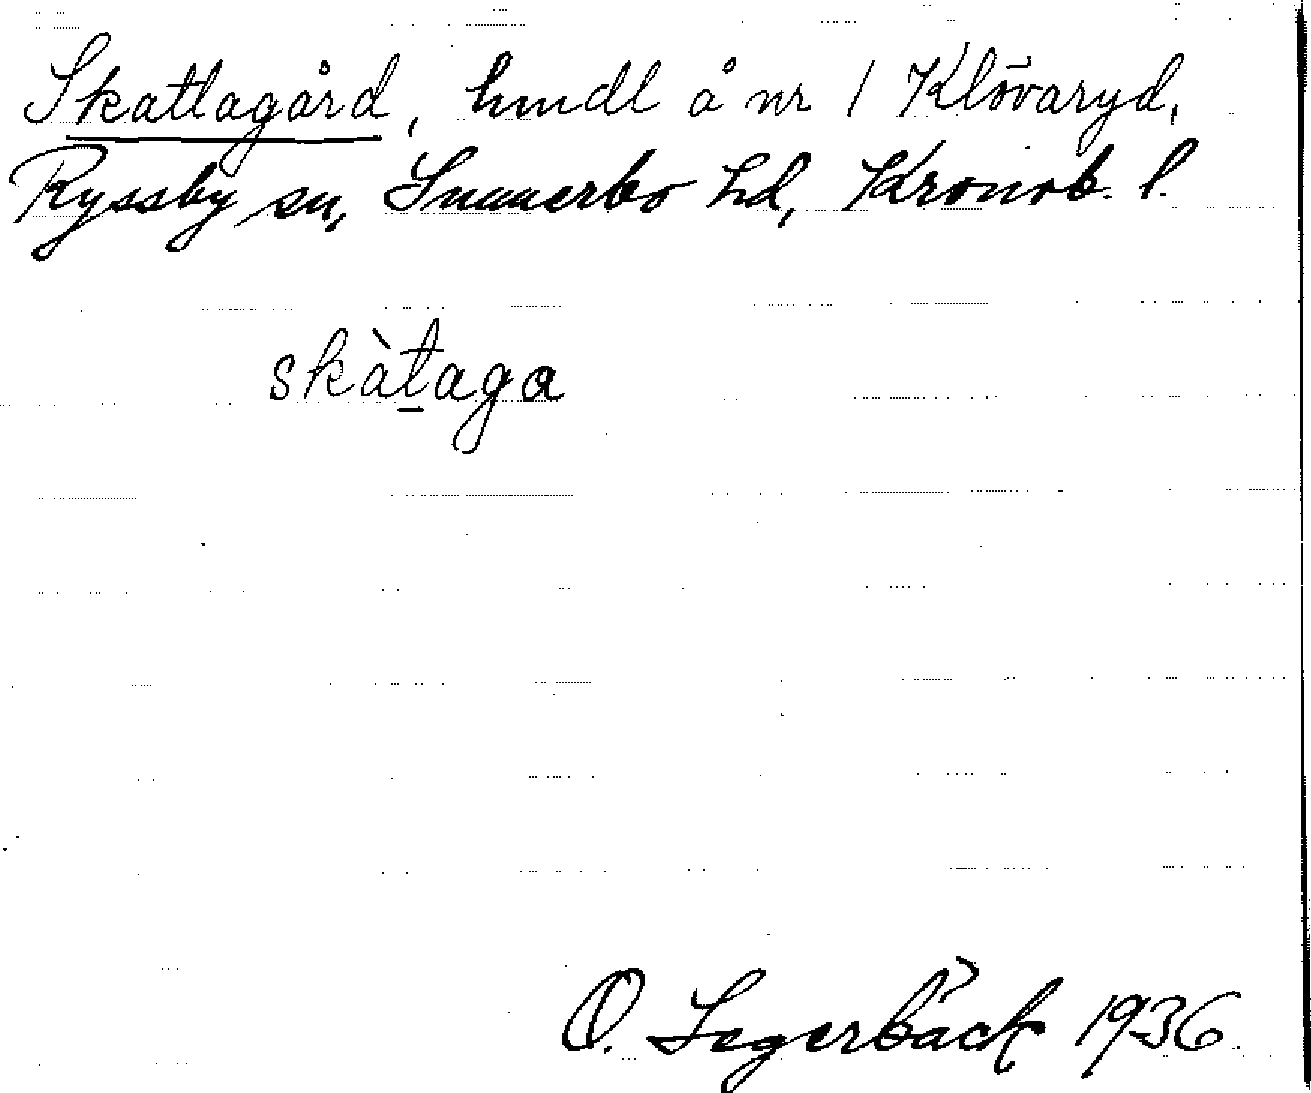 Skattagård, hmdl å nr 1 Klövaryd,
Ryssby sn, Sunnerbo hd, Kronob. l.
skàt̲aga
O. Segerbäck 1936